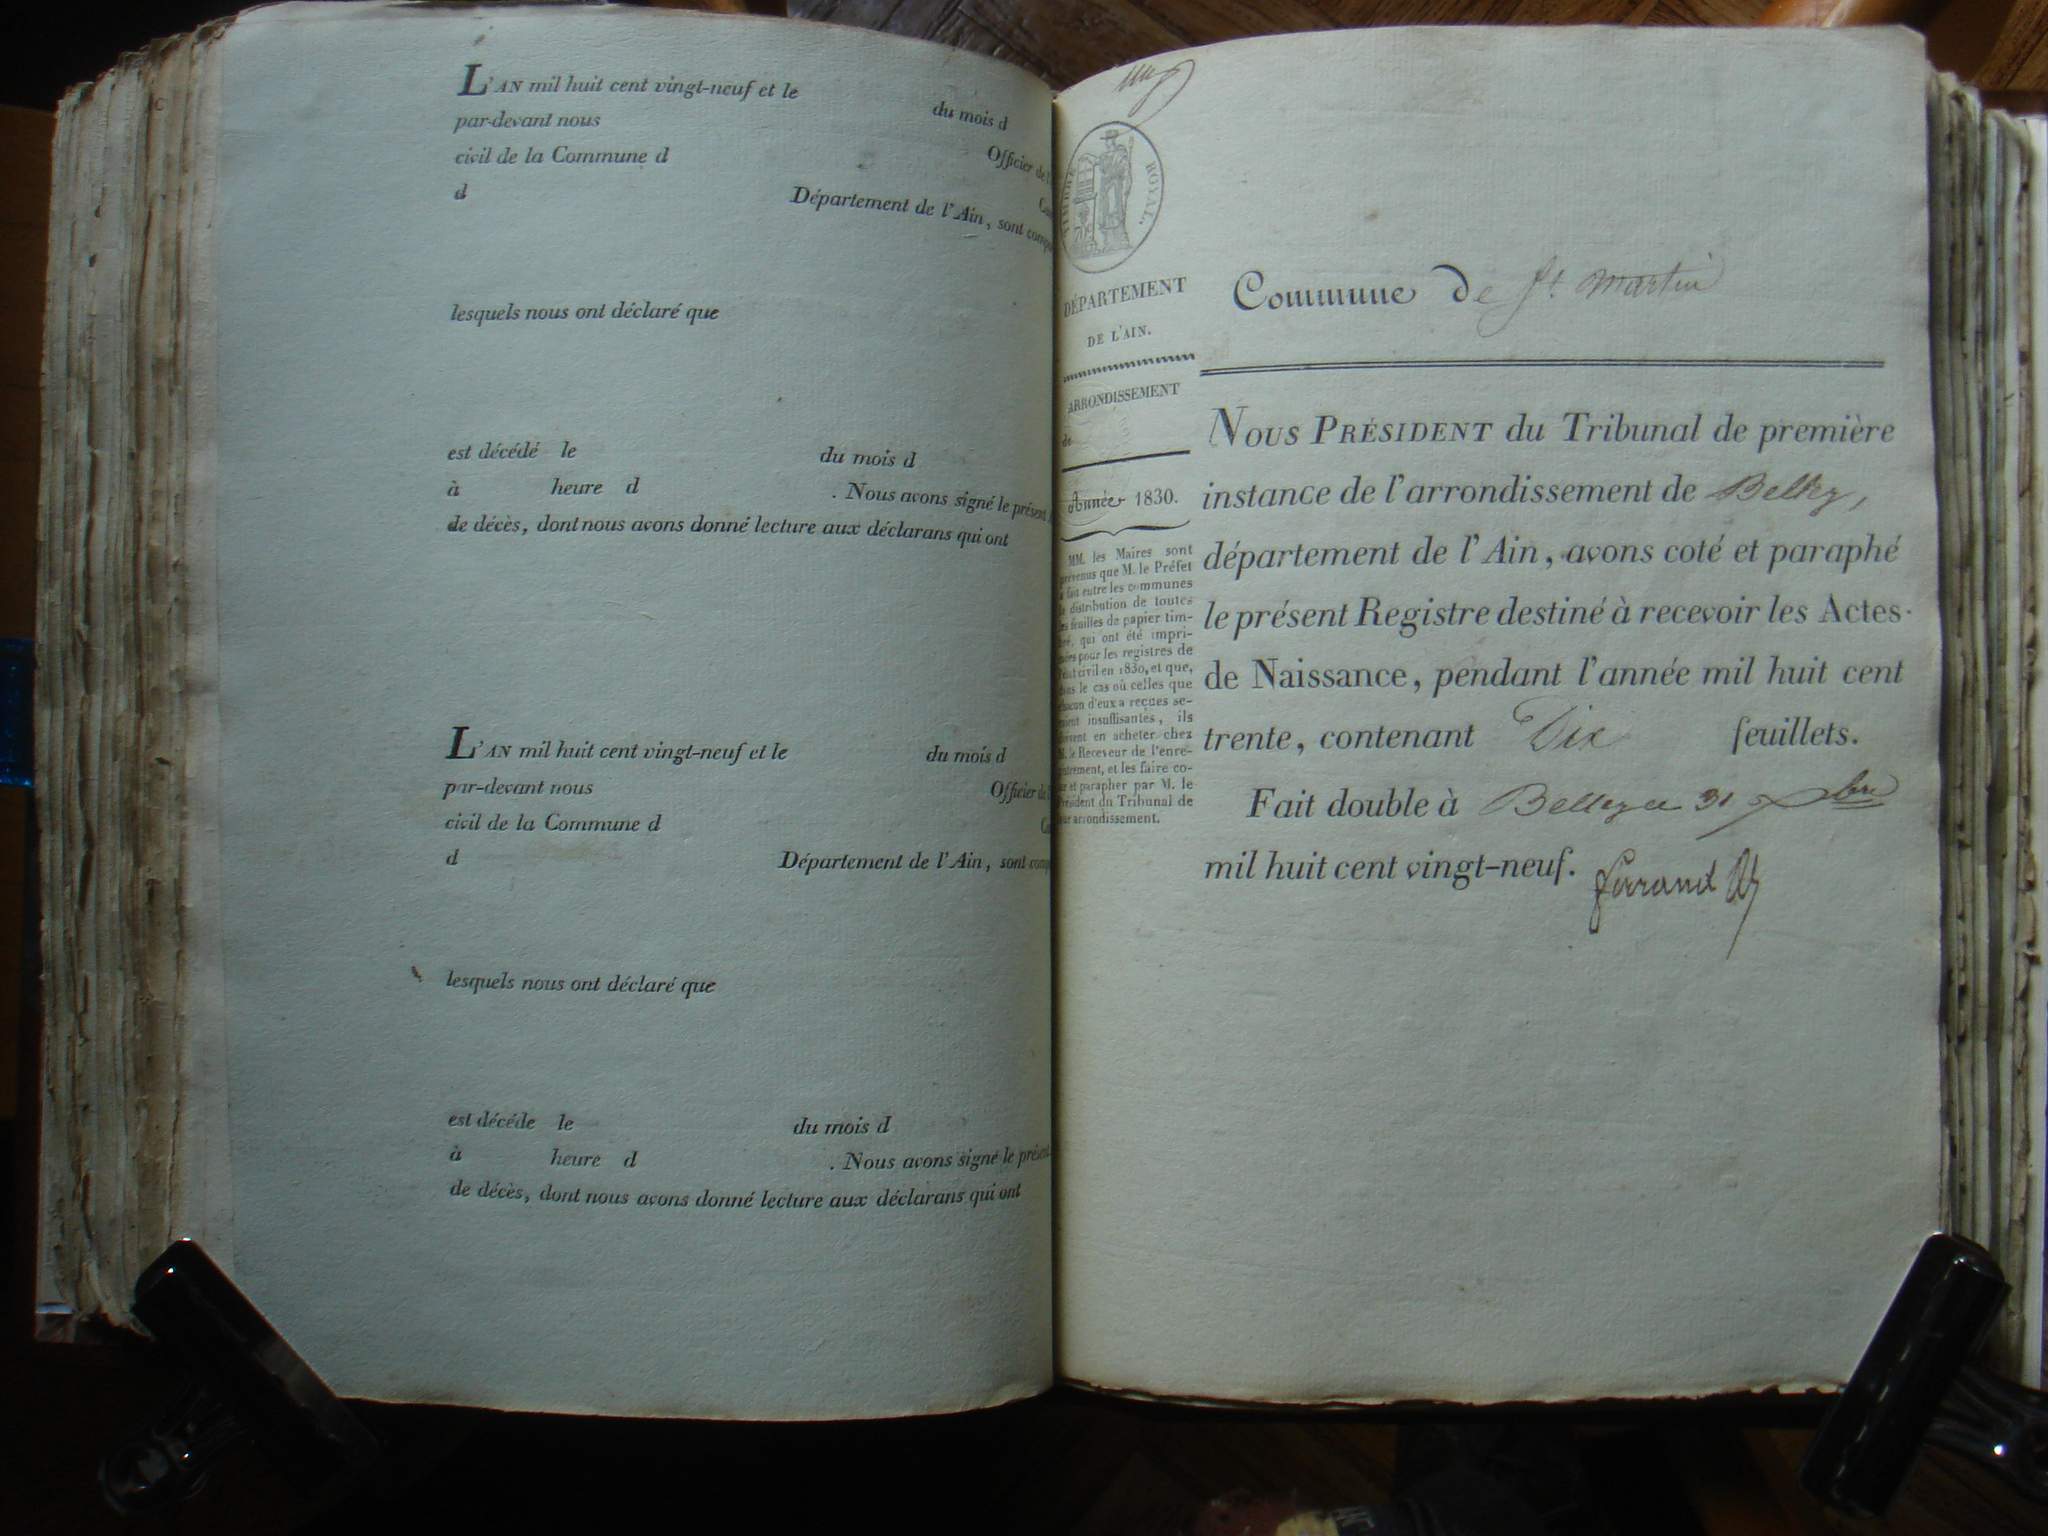 L'AN mil huit cent vingt-neuf et le du mois d
par-devant nous Officier de l'
civil de la Commune d
d Département de l'Ain, sont comp
lesquels nous ont déclaré que
est décédé le du mois d
à heure d . Nous avons signé le présent
de décès, dont nous avons donné lecture aux déclarans qui ont
L'AN mil huit cent vingt-neuf et le du mois d
par-devant nous Officier de
civil de la Commune d
d Département de l'Ain, sont comp
lesquels nous ont déclaré que
est décédé le du mois d
à heure d . Nous avons signé le présent
de décès, dont nous avons donné lecture aux déclarans qui ont
TIMBRE ROYAL.
DÉPARTEMENT
DE L'AIN.
ARRONDISSEMENT
de
Année 1830.
MM. les Maires sont
prévenus que M. le Préfet
a fait entre les communes
la distribution de toutes
les feuilles de papier tim-
bré, qui ont été impri-
mées pour les registres de
l'état civil en 1830, et que,
dans le cas où celles que
chacun d'eux a reçues se-
raient insuffisantes, ils
devront en acheter chez
M. le Receveur de l'enre-
gistrement, et les faire co-
ter et parapher par M. le
Président du Tribunal de
leur arrondissement.
Commune de St. Martin
NOUS PRÉSIDENT du Tribunal de première
instance de l'arrondissement de Belley,
département de l'Ain, avons coté et paraphé
le présent Registre destiné à recevoir les Actes
de Naissance, pendant l'année mil huit cent
trente, contenant Dix feuillets.
Fait double à Belley ce 31 Xbre
mil huit cent vingt-neuf. Ferrand